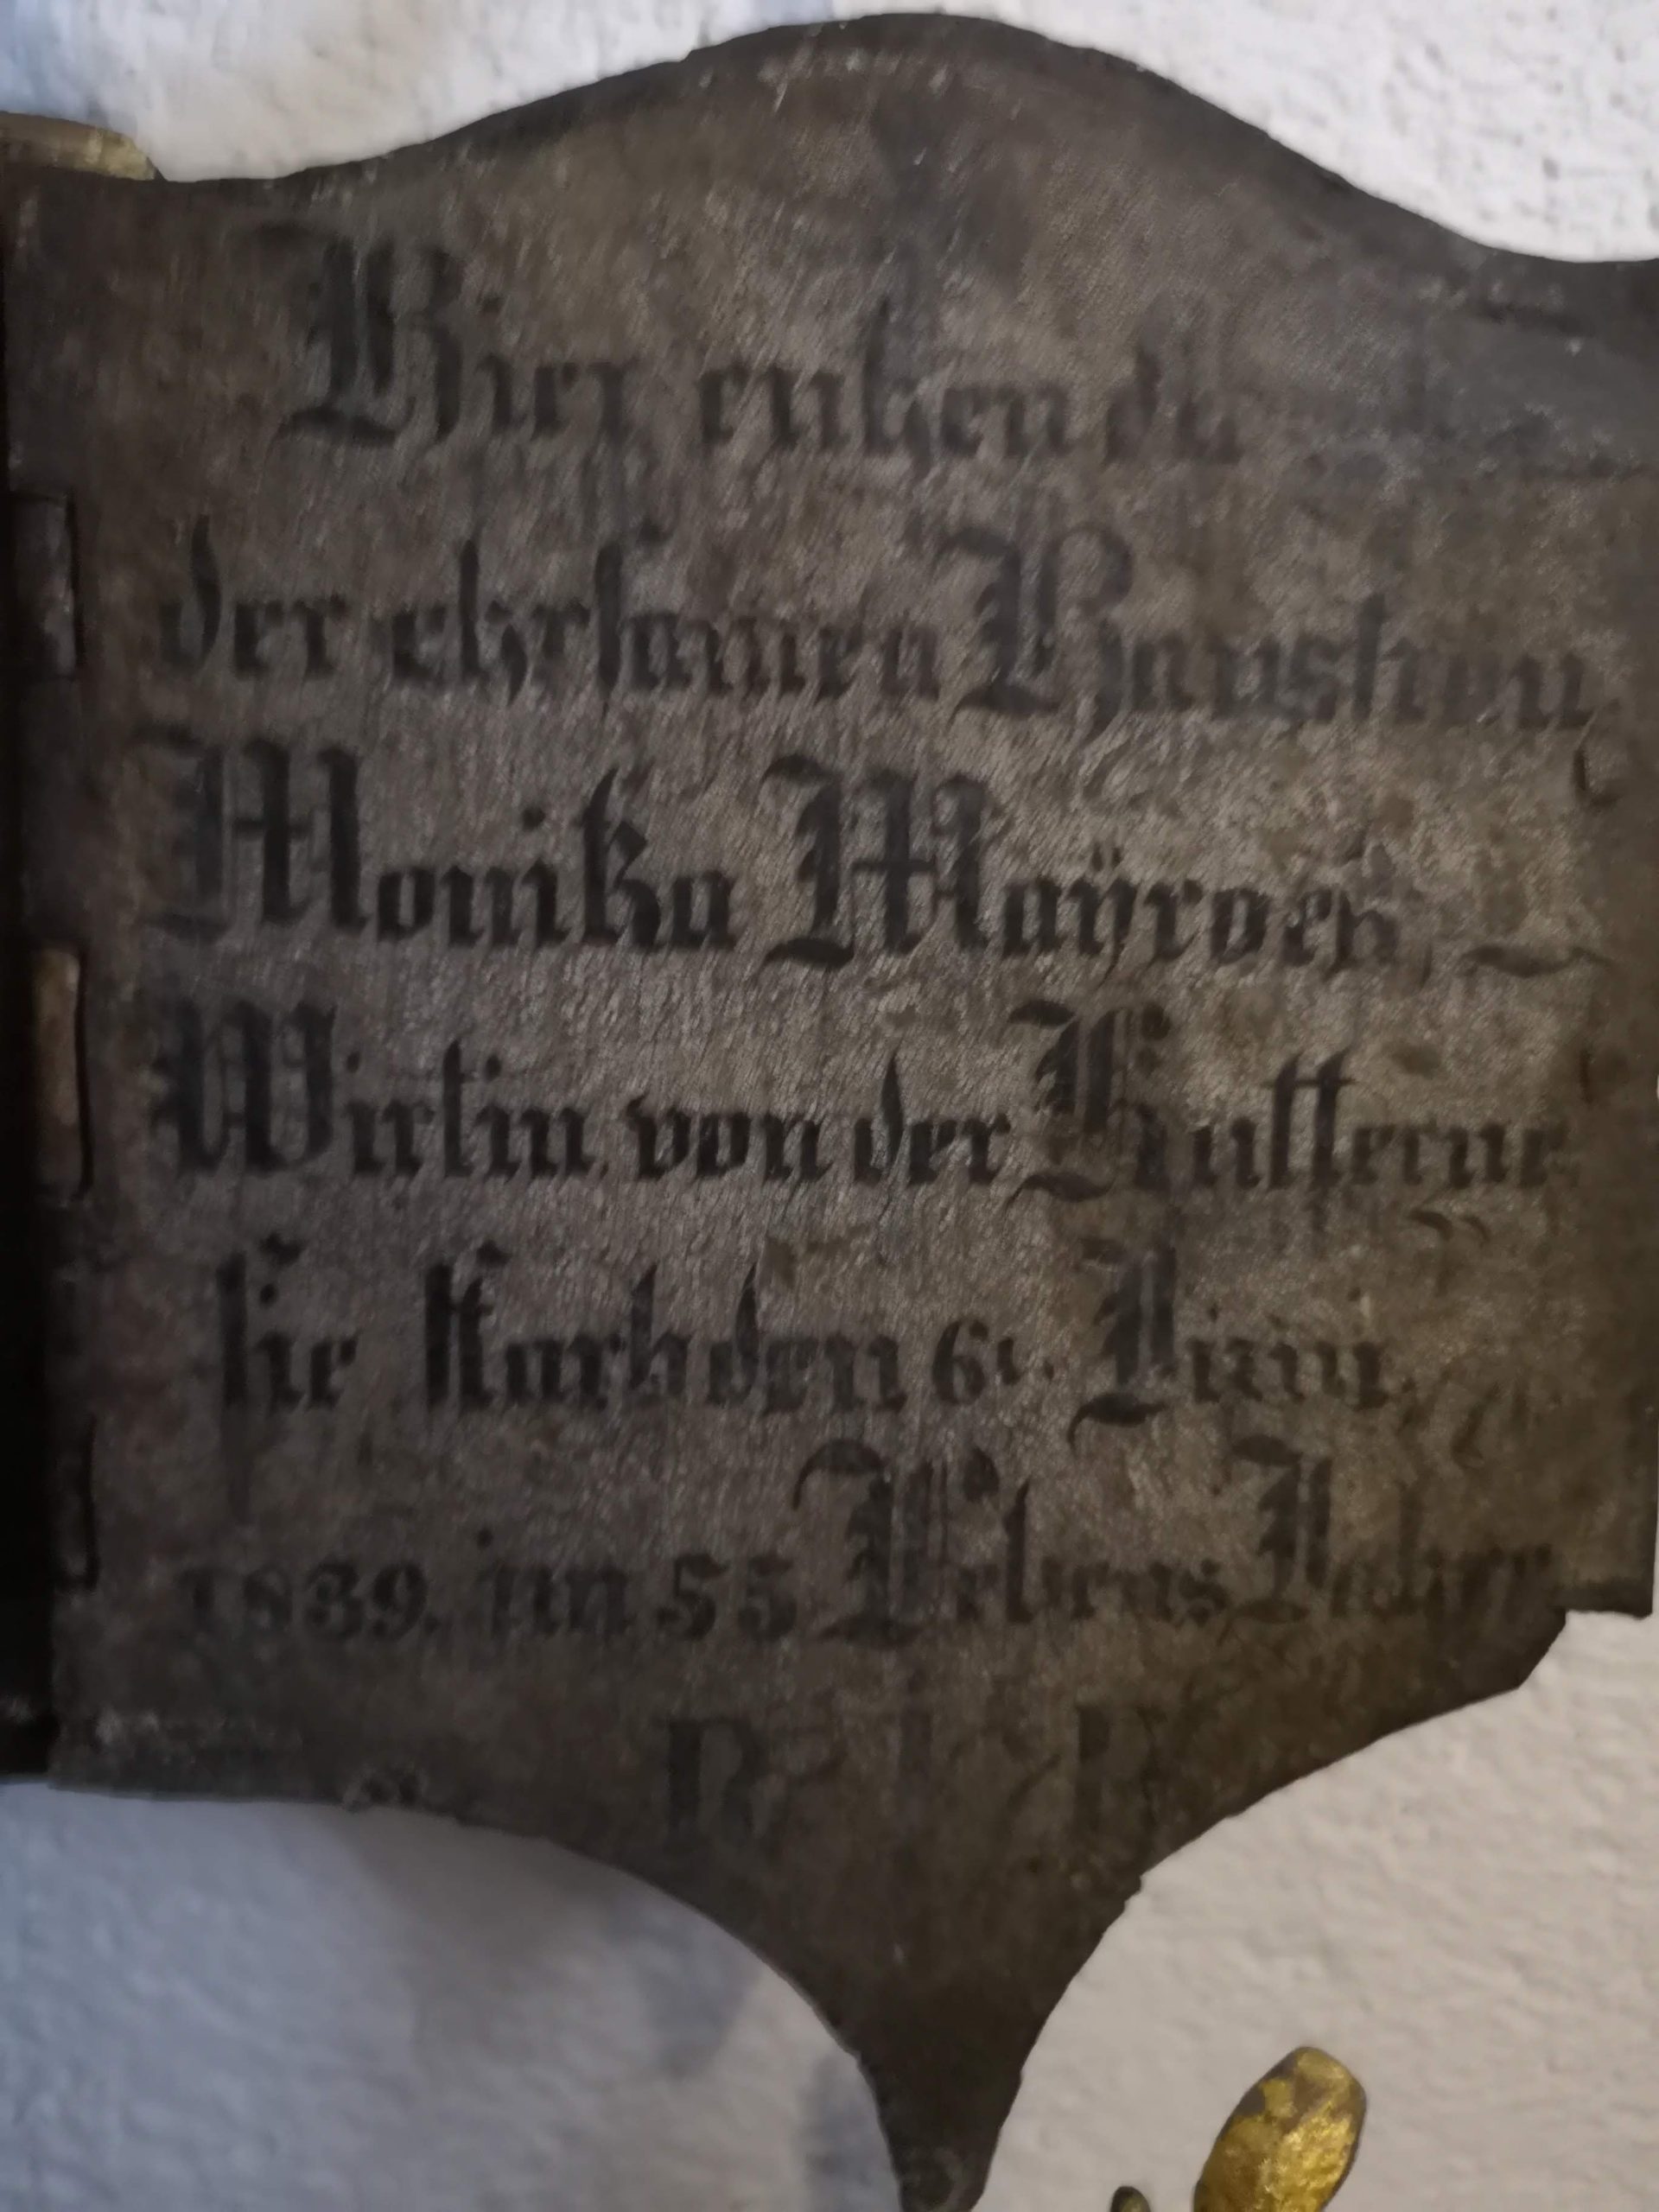 Hier ruhen die
der ehrsamen Hausfrau
Monika Maÿrden
Wirtin von der
sie starb den 6t. Juni
1839. im 55 Lebens Jahre
R I P